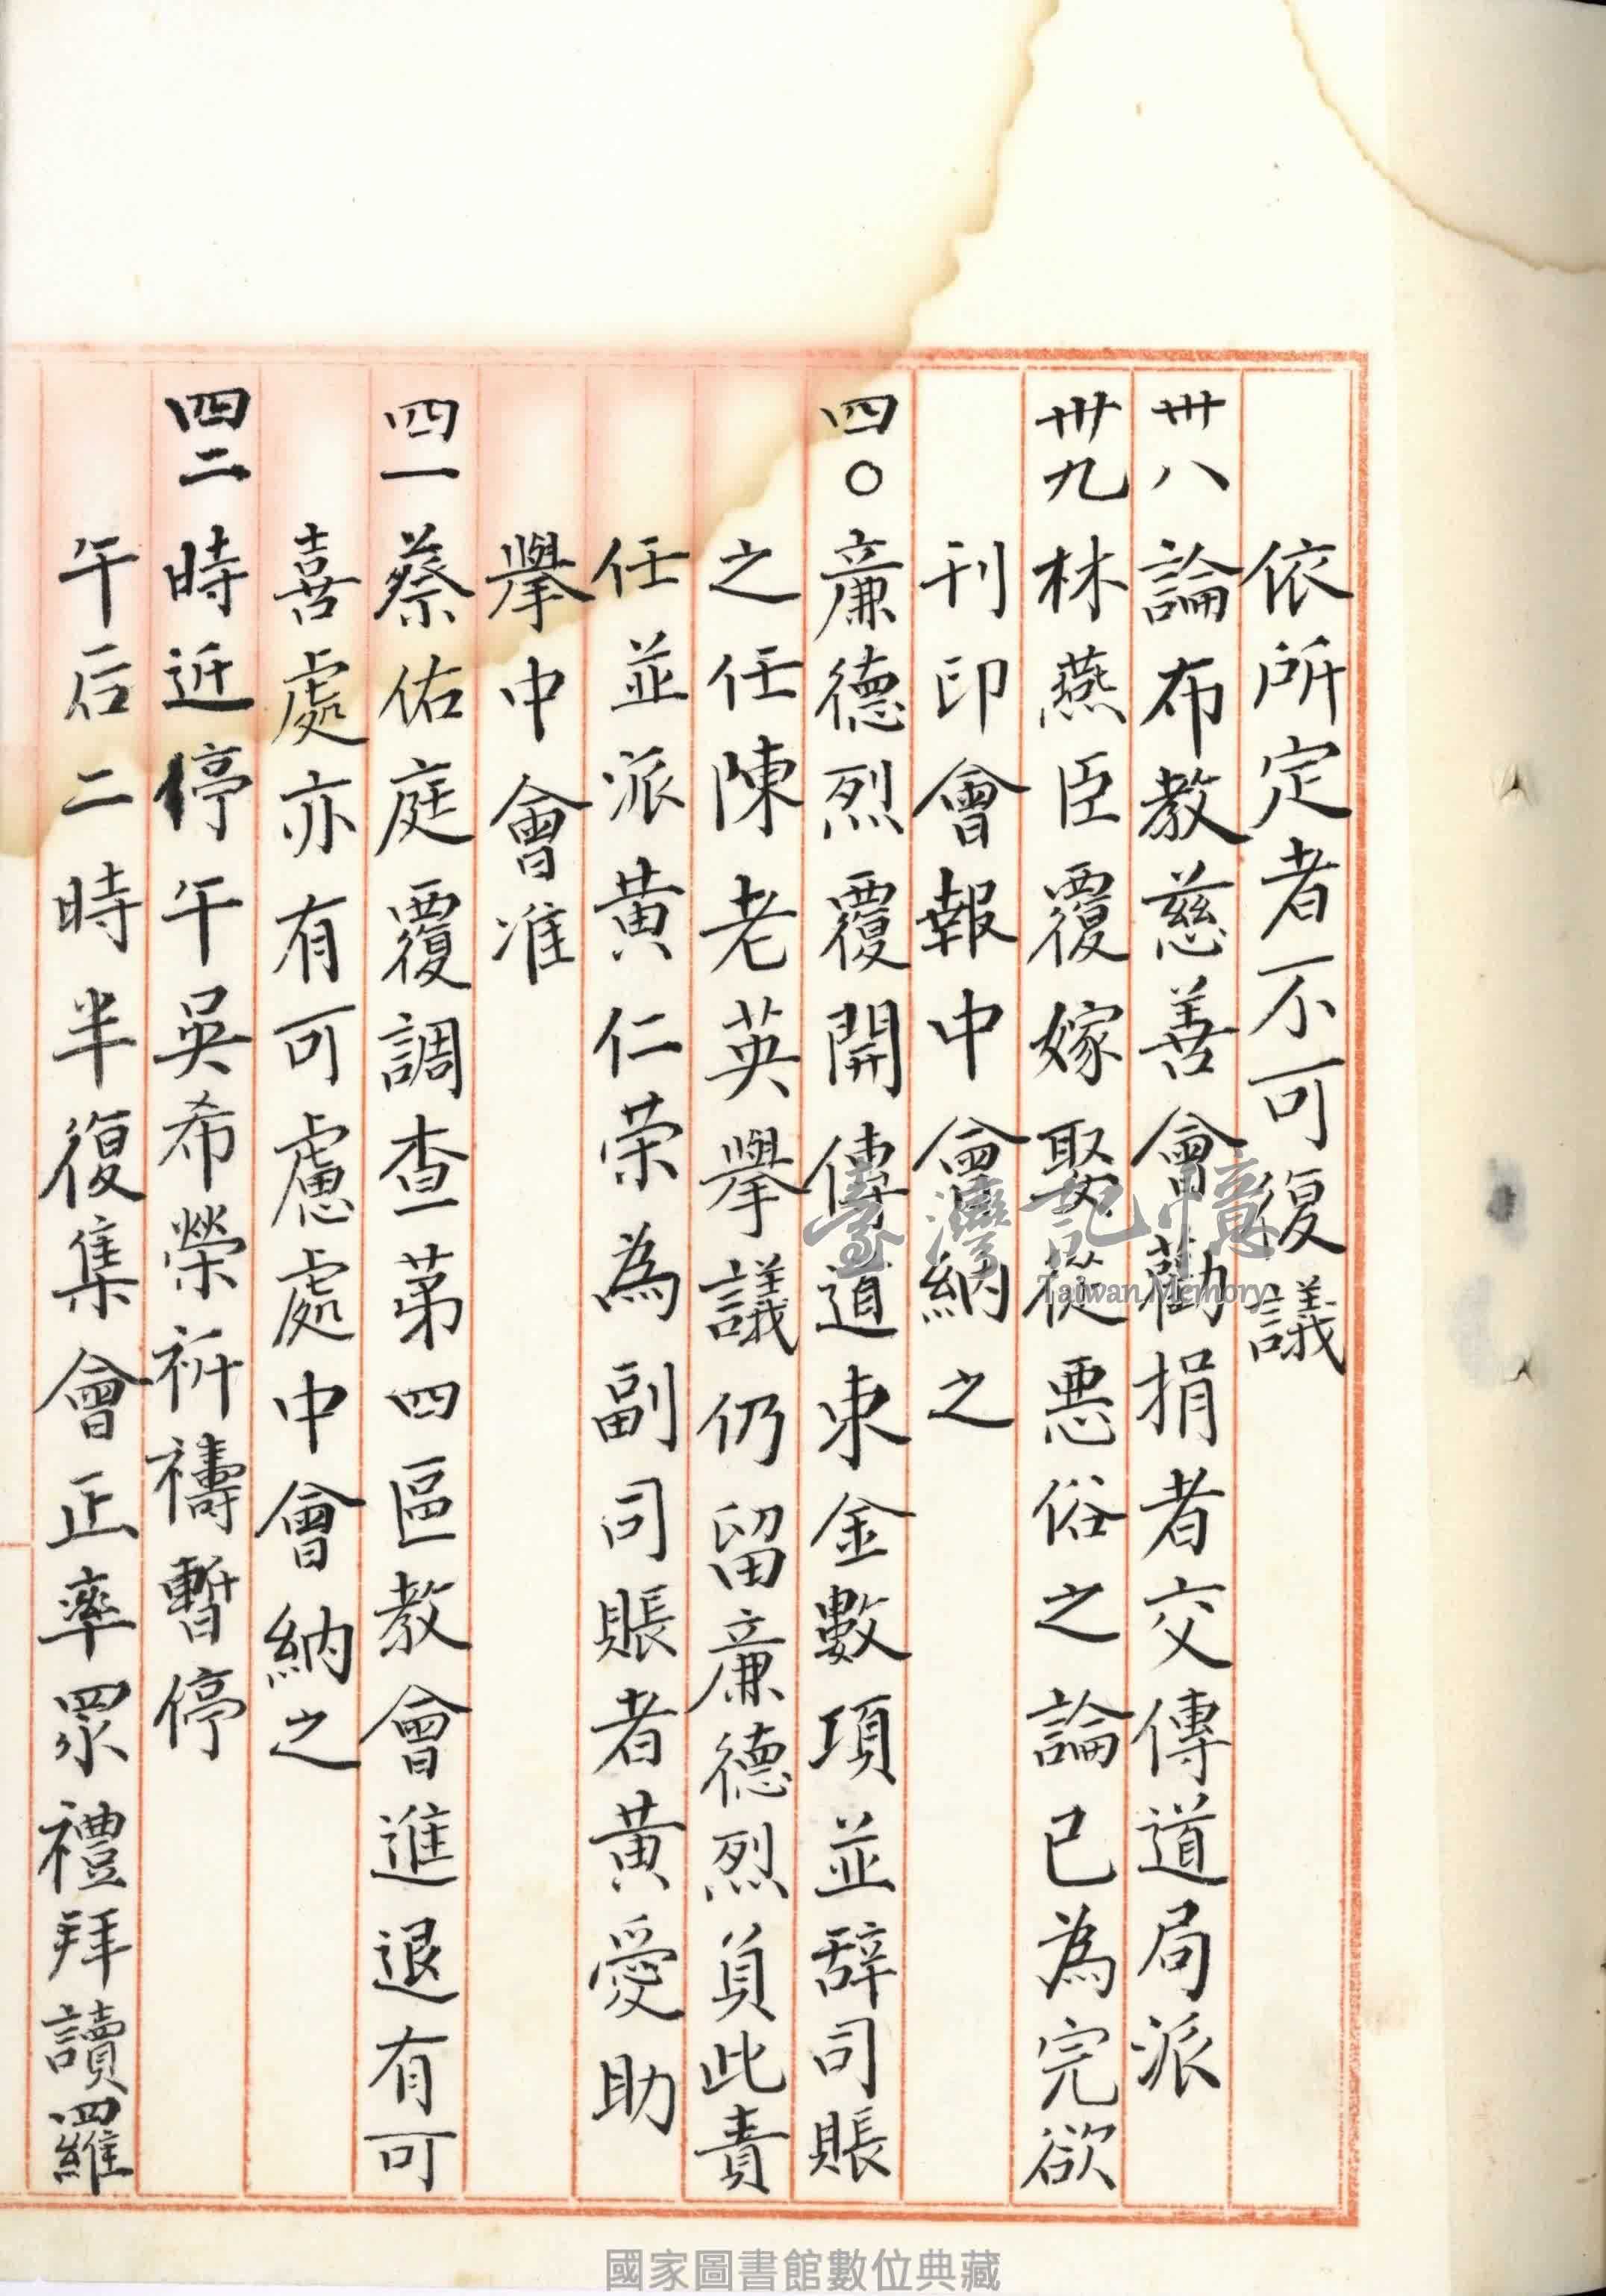 依所定者不可復議
卅八論布教慈善會勸捐者交傳道局派
卅九林燕臣覆嫁娶從惡俗之論已為完欲
刊印會報中會納之
四〇廉德烈覆開傳道束金數項並辞司賬
之任陳老英擧議仍留廉德烈負此責
任並派黃仁荣為副司賬者黃受助
擧中會准
四一蔡佑庭覆調查苐四區教會進退有可
喜處亦有可慮處中會納之
四二時近停午吳希榮祈禱暫停
午后二時半復集會正率眾禮拜讀羅
臺灣記憶
Taiwan Memory
國家圖書館數位典藏